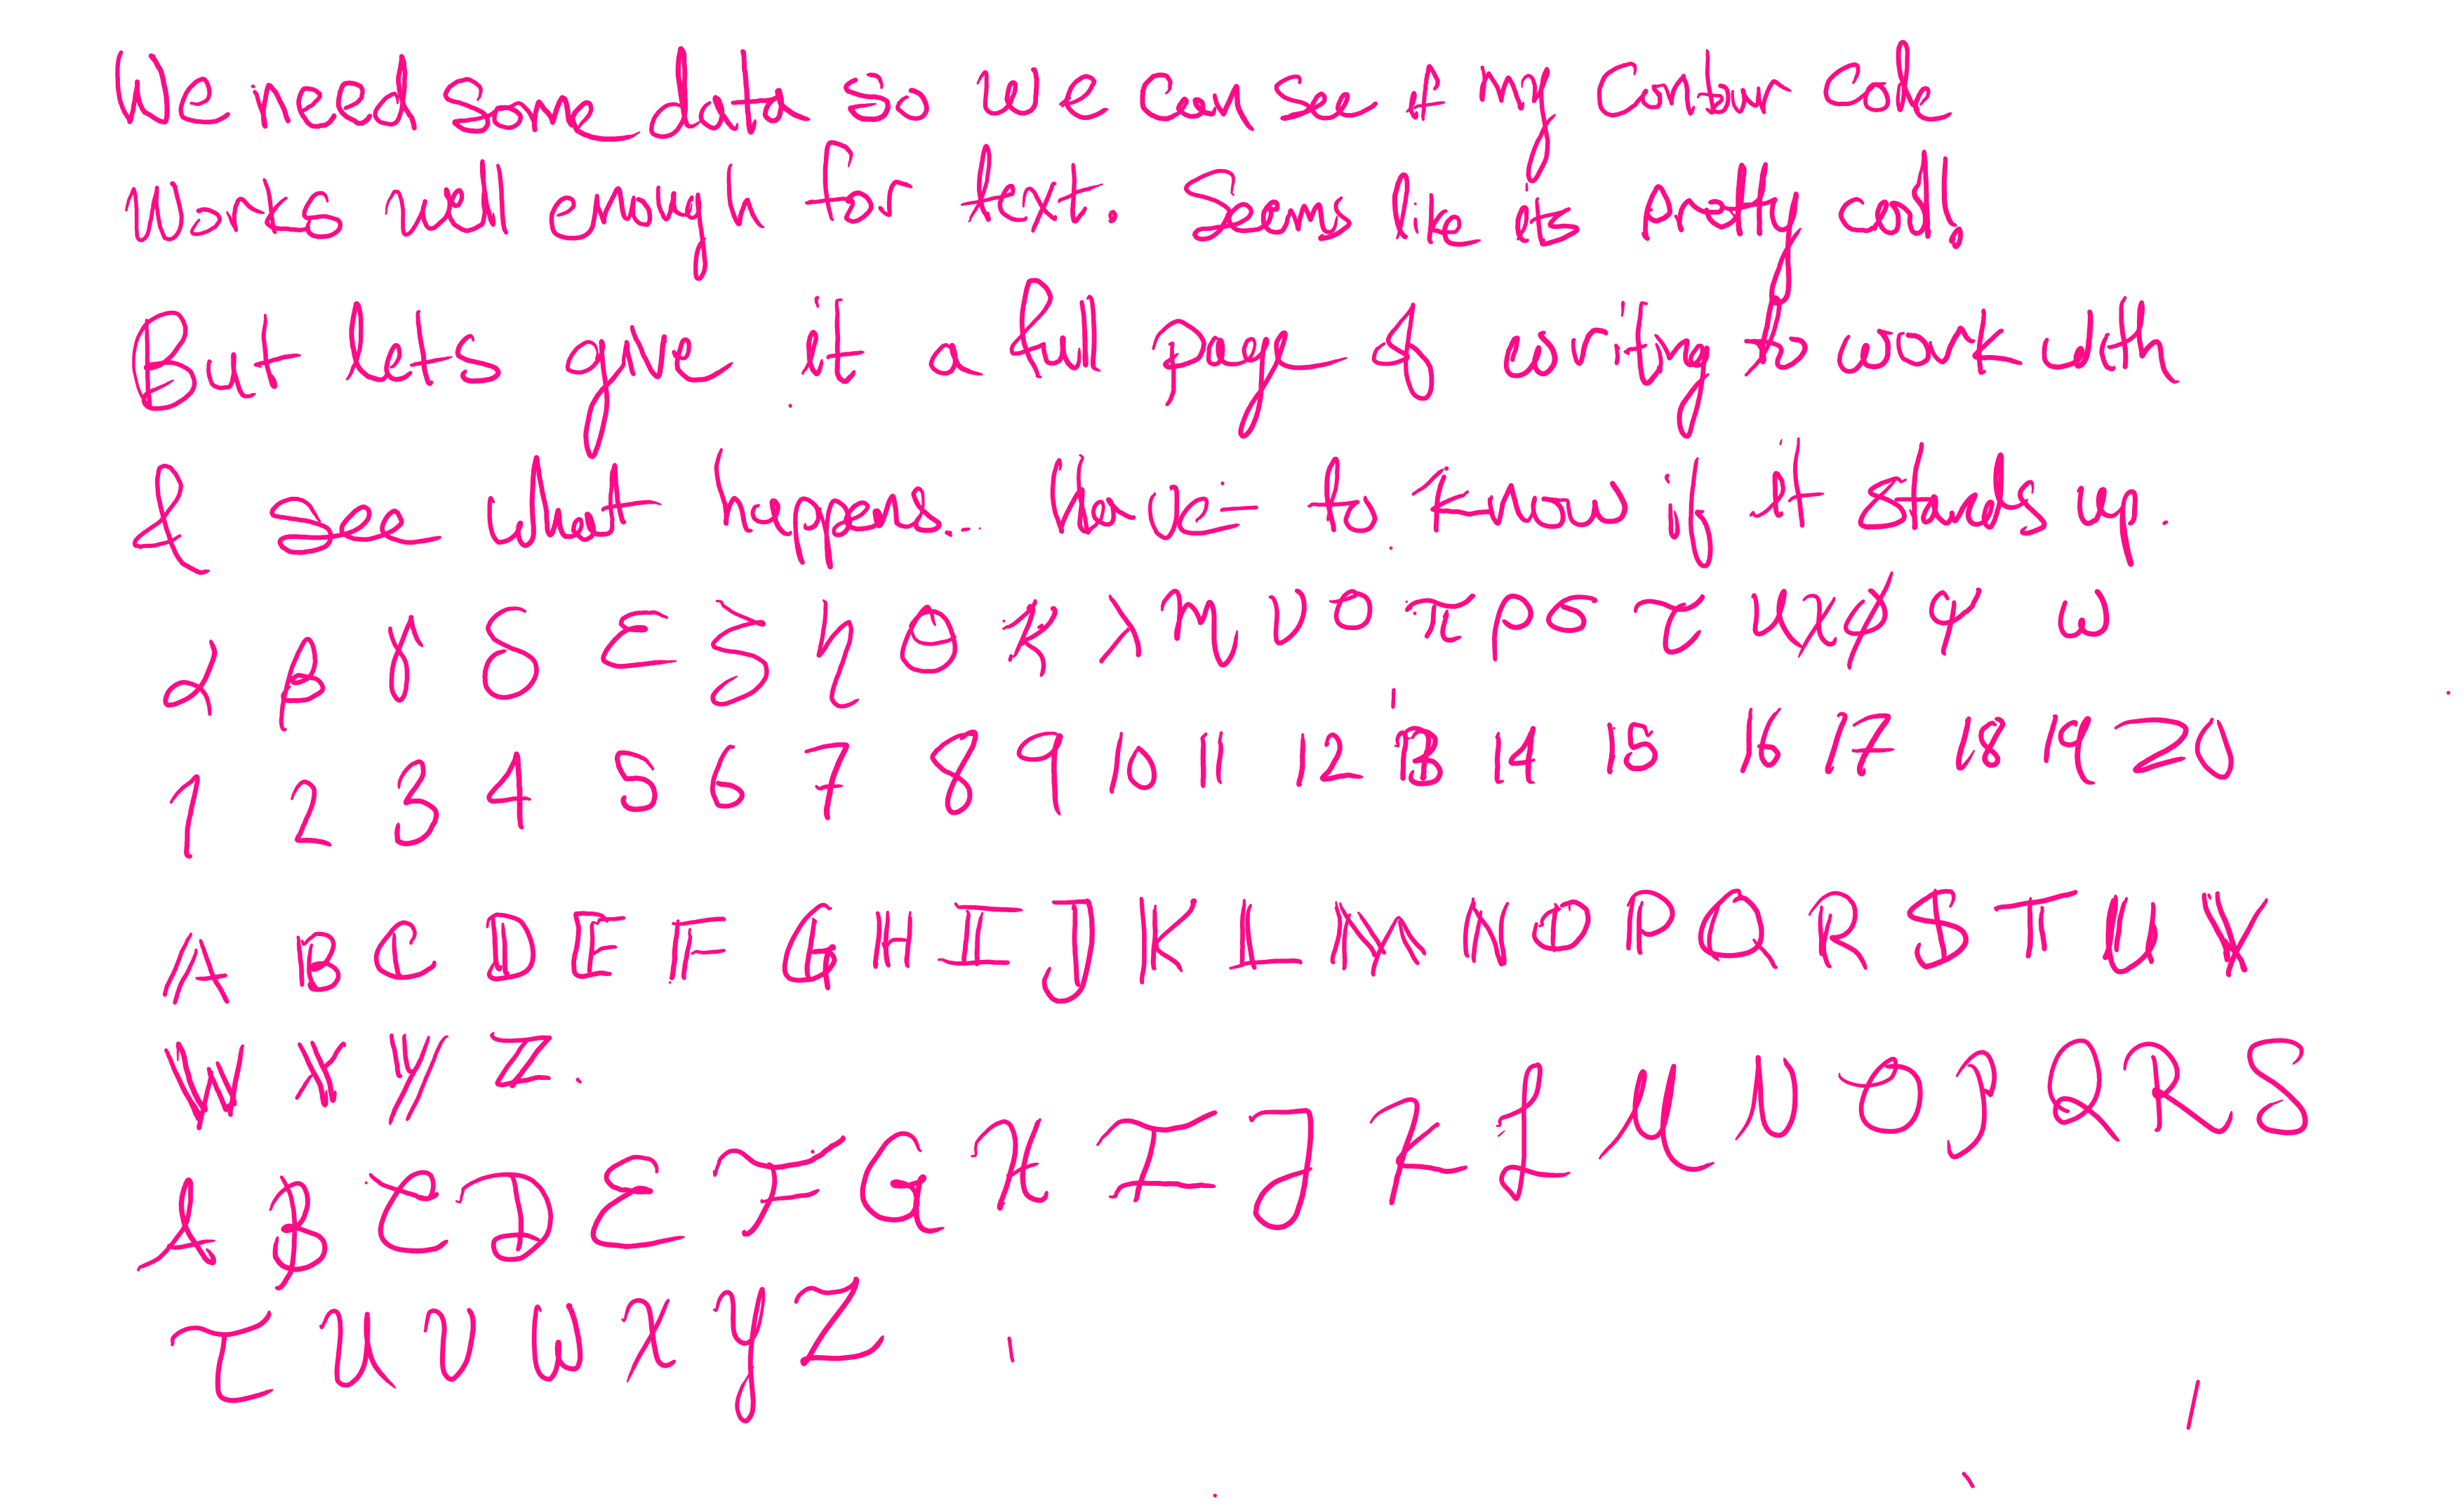 We need some data so we can see if my contour code
works well enough for text. Seems like its pretty cool,
But lets give it a full page of writing to work with
& see what happens... Have to know if it stands up.
α β γ δ ε ξ η θ κ λ m ν σ π ρ σ τ u x χ φ ω
1 2 3 4 5 6 7 8 9 10 11 12 13 14 15 16 17 18 19 20
A B C D E F G H I J K L M N O P Q R S T U V
W X Y Z.
A B C D E F G H I J K L M N O P Q R S
T U V W X Y Z